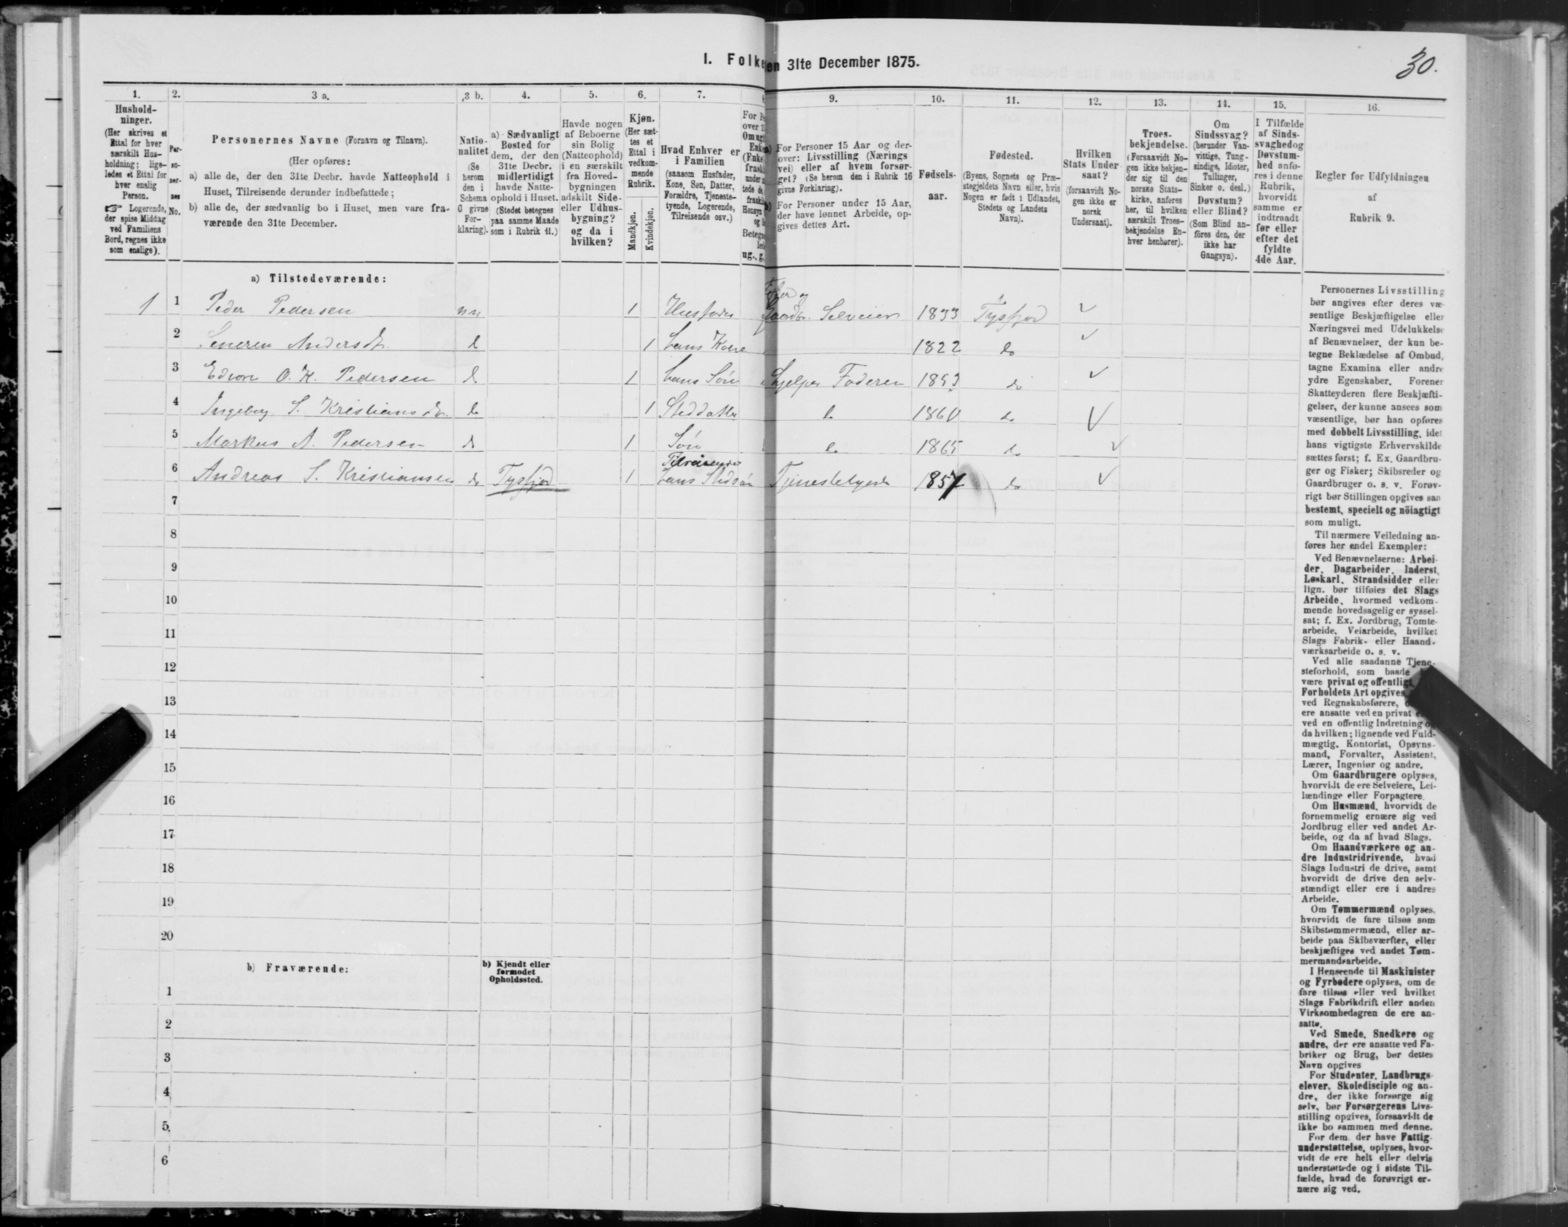 I. Folke en 31te December 1875.
30.
1. 2. 3 a. 3 b. 4. 5. 6. 7. 9. 10. 11. 12. 13. 14. 15. 16.
Hushold-
ninger.
(Her skrives et
Ettal for hver
særskilt Hus-
holdning; lige-
ledes et Ettal for
hver enslig
Person.
☞ Logerende,
der spise Middag
ved Familiens
Bord, regnes ikke
som enslige).
Per-
so-
ner-
nes
No.
Personernes Navne (Fornavn og Tilnavn).
(Her opføres:
a) alle de, der den 31te Decbr. havde Natteophold i
Huset, Tilreisende derunder indbefattede;
b) alle de, der sædvanlig bo i Huset, men vare fra-
værende den 31te December.
Natio-
nalitet
(Se
herom
den i
Schema
O givne
For-
klaring).
a) Sædvanligt
Bosted for
dem, der den
31te Decbr.
midlertidigt
havde Natte-
ophold i Huset.
(Stedet betegnes
paa samme Maade
som i Rubrik 11.)
Havde nogen
af Beboerne
sin Bolig
(Natteophold)
i en særskilt
fra Hoved-
bygningen
adskilt Side-
eller Udhus-
bygning?
og da i
hvilken?
Kjøn.
(Her sæt-
tes et
Ettal i
vedkom-
mende
Rubrik.
Mandkjøn.
Kvindekjøn.
Hvad Enhver er
i Familien
(saasom Husfader,
Kone, Søn, Datter,
Forældre, Tjeneste-
tyende, Logerende,
Tilreisende osv.)
For Personer 15 Aar og der-
over: Livsstilling (Nærings
vei) eller af hvem forsør-
get? (Se herom den i Rubrik 16
givne Forklaring).
For Personer under 15 Aar,
der have lønnet Arbeide, op-
gives dettes Art.
Fødsels-
aar.
Fødested.
(Byens, Sognets og Præ-
stegjeldets Navn eller, hvis
Nogen er født i Udlandet,
Stedets og Landets
Navn).
Hvilken
Stats Under
saat?
(forsaavidt No-
gen ikke er
norsk
Undersaat).
Troes-
bekjendelse.
(Forsaavidt No-
gen ikke bekjen-
der sig til den
norske Stats-
kirke, anføres
her, til hvilken
særskilt Troes-
bekjendelse En-
hver henhører).
Om
Sindssvag?
(herunder Van-
vittige, Tung-
sindige, Idioter,
Tullinger,
Sinker o. desl.)
Døvstum?
eller Blind?
(Som Blind an-
føres den, der
ikke har
Gangsyn).
I Tilfælde
af Sinds-
svaghedog
Døvstum-
hed anfø-
res i denne
Rubrik,
hvorvidt
samme er
indtraadt
før eller
efter det
fyldte
4de Aar.
Regler for Udfyldningen
af
Rubrik 9.
a) Tilstedeværende:
1 1 Peder Pedersen nn 1 Husfader Selveier 1833 Tysfjord
2 Andersdt. d. 1 hans Kone 1822 do
3 Edvon O. K. Pedersen d. 1 hans Søn hjelper Faderen 1853 do
4 Ingeborg S. Kristiansdr. do 1 Steddatter do 1860 do
5 Markus A. Pedersen do 1 Søn do 1865 do
6 Andreas S. Kristiansen do Tysfjord 1 Tilreisende hans Stedsøn Tjenestetyende 1857 do
7
8
9
10
11
12
13
14
15
16
17
18
19
20
b) Fraværende:
b) Kjendt eller
formodet
Opholdssted.
1
2
3
4
5
6
Personernes Livsstilling
bør angives efter deres væ-
sentlige Beskjæftigelse eller
Næringsvei med Udelukkelse
af Benævnelser, der kun be-
tegne Beklædelse af Ombud,
tagne Examina eller andre
ydre Egenskaber. Forener
Skatteyderen flere Beskjæfti-
gelser, der kunne ansees som
væsentlige, bør han opføres
med dobbelt Livsstilling, idet
hans vigtigste Erhvervskilde
sættes først; f. Ex. Gaardbru-
ger og Fisker; Skibsreder og
Gaardbruger o. s. v. Forøv-
rigt bør Stillingen opgives saa
bestemt, specielt og nöiagtigt
som muligt.
Til nærmere Veiledning an-
føres her endel Exempler:
Ved Benævnelserne: Arbei-
der, Dagarbeider, Inderst,
Løskarl, Strandsidder eller
lign. bør tilføies det Slags
Arbeide, hvormed vedkom-
mende hovedsagelig er syssel-
sat; f. Ex. Jordbrug, Tomte-
arbeide, Veiarbeide, hvilket
Slags Fabrik- eller Haand-
værksarbeide o. s. v.
Ved alle saadanne Tjene-
steforhold, som baade
være privat og offentligt
Forholdets Art opgives
ved Regnskabsførere,
ere ansatte ved en privat
ved en offentlig Indretning
da hvilken; lignende ved Fuld-
mægtig, Kontorist, Opsyns-
mand, Forvalter, Assistent,
Lærer, Ingeniør og andre.
Om Gaardbrugere oplyses,
hvorvidt de ere Selveiere, Lei-
lændinge eller Forpagtere.
Om Husmænd, hvorvidt de
fornemmelig ernære sig ved
Jordbrug eller ved andet Ar-
beide, og da af hvad Slags.
Om Haandværkere og an-
dre Industridrivende, hvad
Slags Industri de drive, samt
hvorvidt de drive den selv-
stændigt eller ere i andres
Arbeide.
Om Tømmermænd oplyses,
hvorvidt de fare tilsøs som
Skibstømmermænd, eller ar-
beide paa Skibsværfter, eller
beskjæftiges ved andet Tøm-
mermandsarbeide.
I Henseende til Maskinister
og Fyrbødere oplyses, om de
fare tilsøs eller ved hvilket
Slags Fabrikdrift eller anden
Virksomhedsgren de ere an-
satte.
Ved Smede, Snedkere og
andre, der ere ansatte ved Fa-
briker og Brug, bør dettes
Navn opgives
For Studenter, Landbrugs-
elever, Skoledisciple og an-
dre, der ikke forsørge sig
selv, bør Forsørgerens Livs-
stilling opgives, forsaavidt de
ikke bo sammen med denne.
For dem, der have Fattig-
understøttelse, oplyses, hvor-
vidt de ere helt eller delvis
understøttede og i sidste Til-
fælde, hvad de forøvrigt er-
nære sig ved.